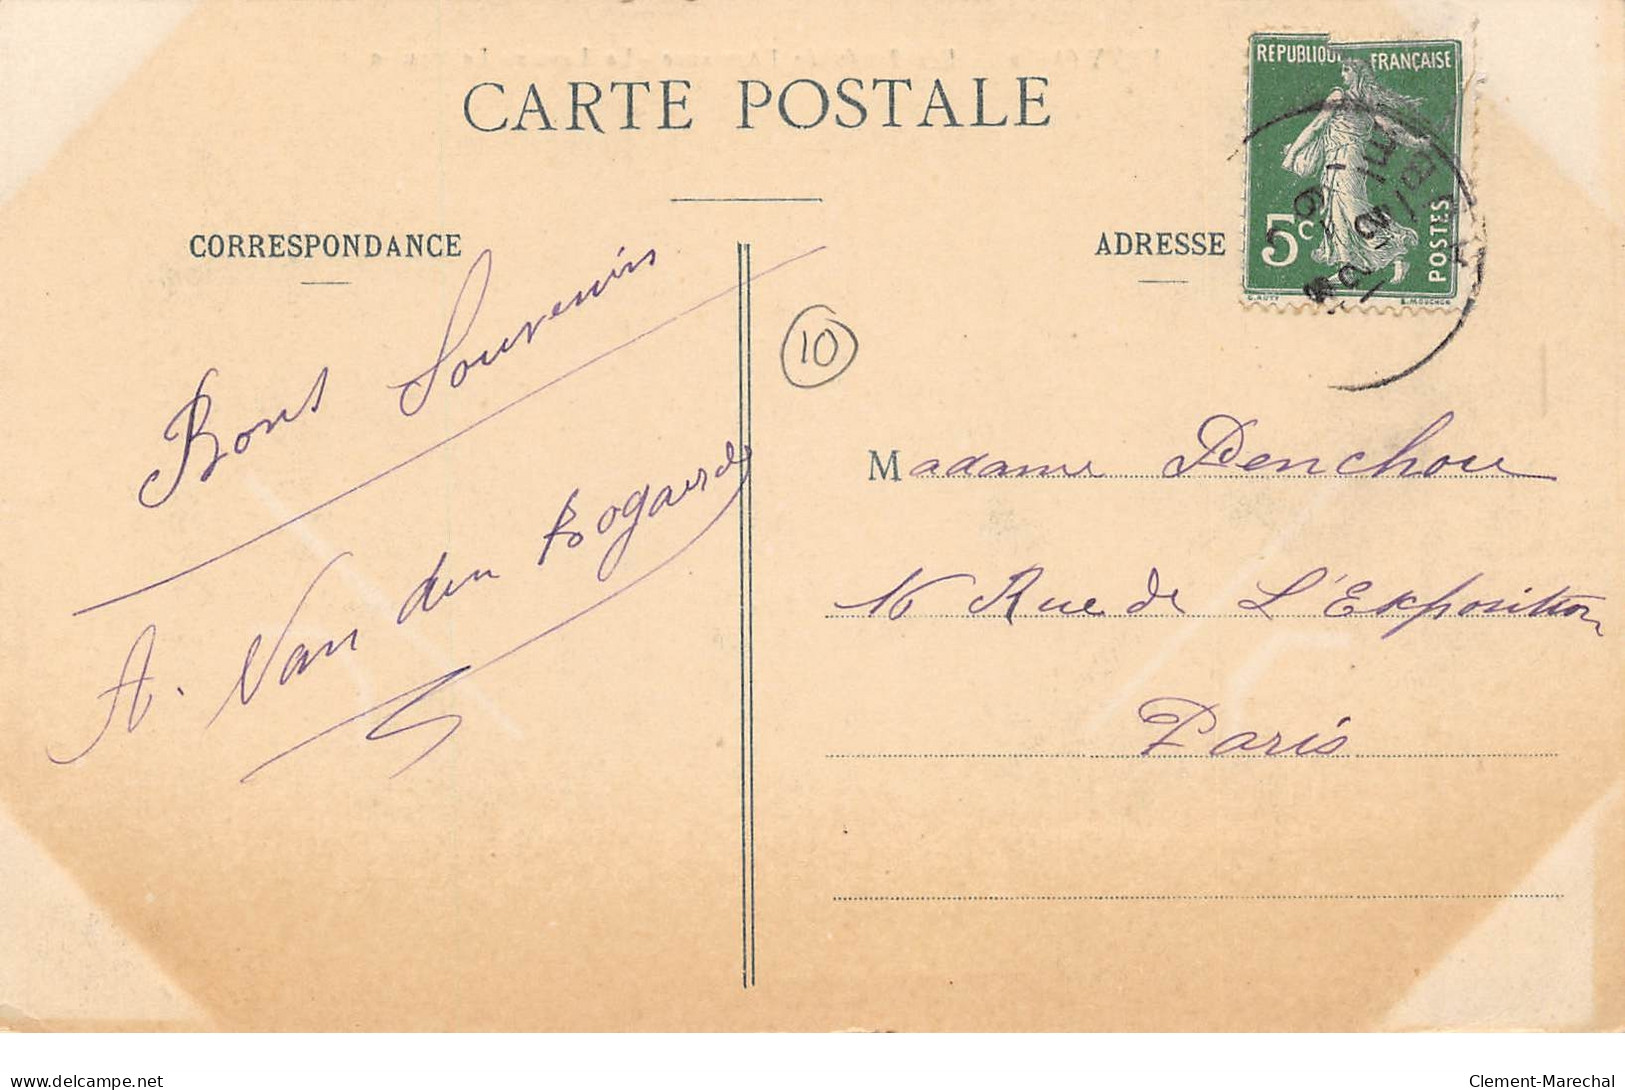 CARTE POSTALE
CORRESPONDANCE
ADRESSE
REPUBLIQUE FRANÇAISE
5c
POSTES
10
Bons Souvenirs
A. Van den Bogaerde
Madame Penchou
16 Rue de L'Exposition
Paris
delcampe.net
Clement-Marechal